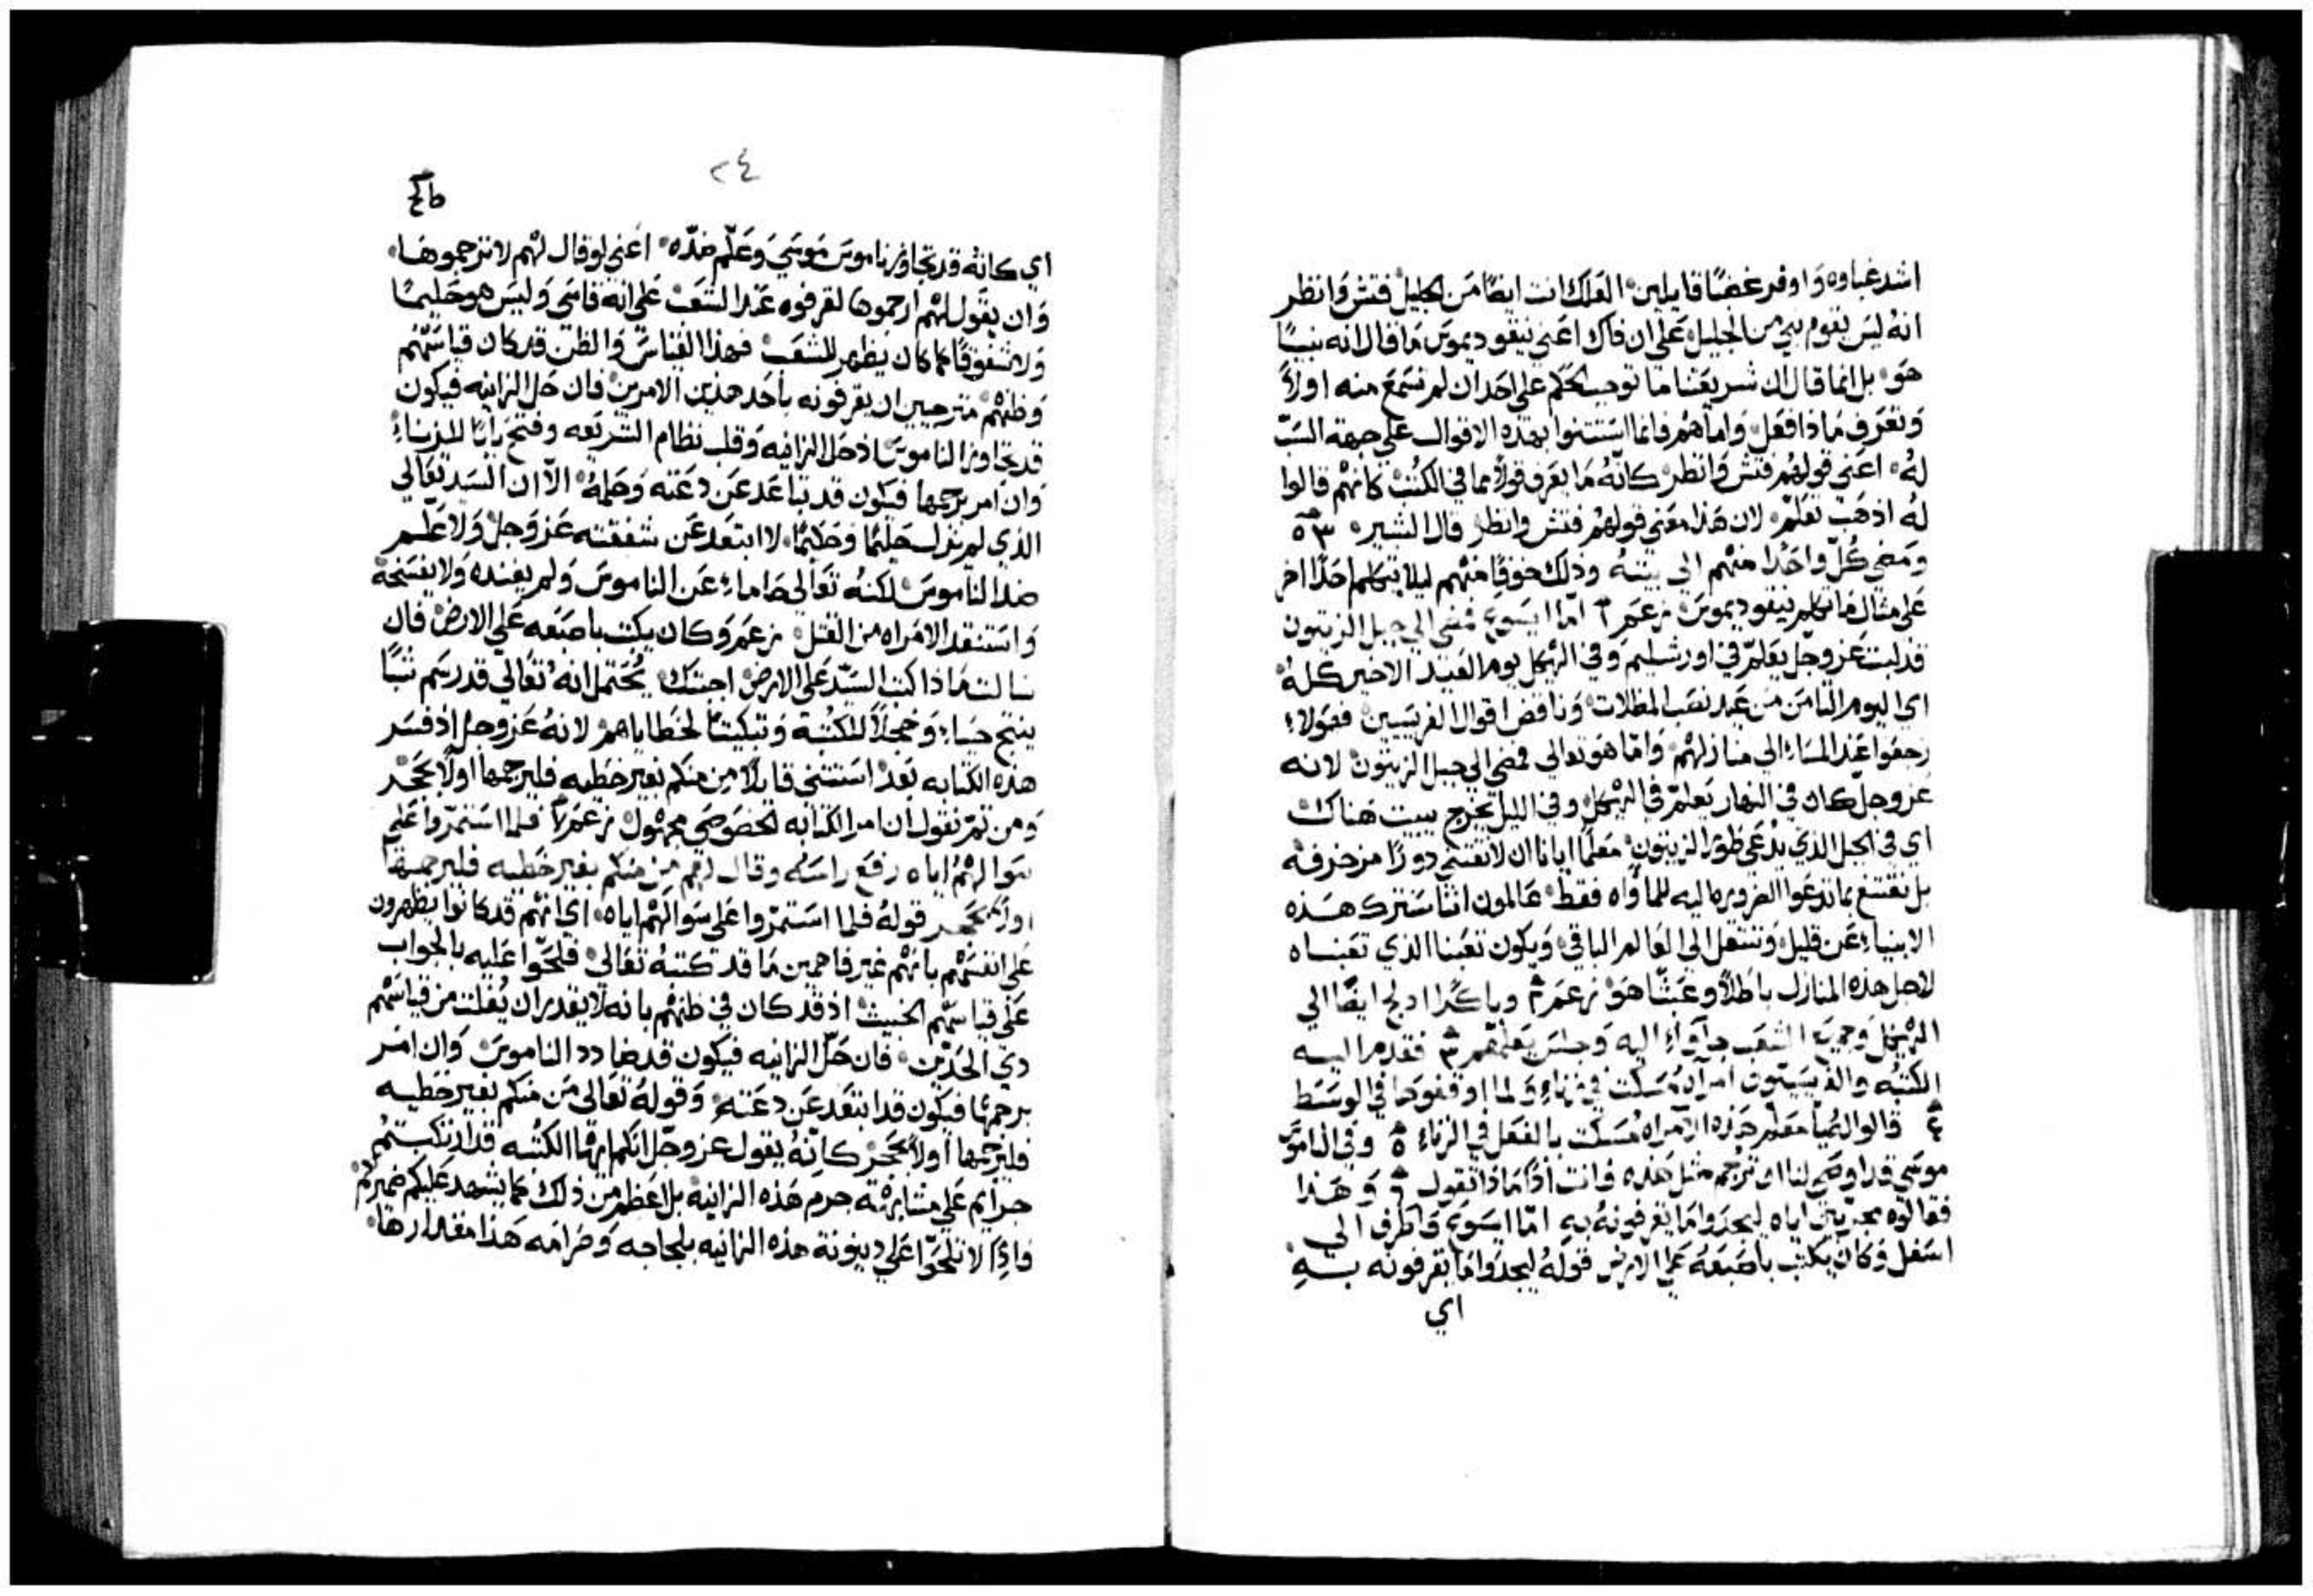 اشد غباوه وَاوفر غضبًا قايلين العلك انت ايضًا من الجليل فتش وَانظر
انهُ ليس يقوم نبي من الجليل علي ان ذاك اعني نيقوديموس مَا قال انه نبيًا
هوَ بل انما قال ان شريعتنا ما توجب الحكم علي احد ان لم نسمع منه اولاً
وَنعرف مَاذا فعل وَاما هم فانما استثنوا بهذه الاقوال علي جهة السَبّ
لهُ اعني قولهم فتش وَانظر كانهُ مَا يعرف قولاً مما في الكتب كانهم قالوا
لهُ اذهب تعلم لان هَذا معني قولهم فتش وانظر قال البشير ٥٣
وَمضي كُلّ واحدًا منهم الي بيتهُ وذلك خوفًا منهم ليلا يتكلم احدًا اخر
علي مثال مَا تكلم نيقوديموس زعم ١ امّا ايسوع فمضي الي جبل الزيتون
قد لبث عز وجل يعلم في اورشليم وَفي الهيكل يوم العيد الاخير كلهُ
اي اليوم الثامن من عيد نصب المظلات وَناقض اقوال الفريسيين فهَولاءِ
رجعوا عند المسَاءِ الي منازلهم وَامّا هوَ تعالي فمضي الي جبل الزيتون لانه
عز وجل كان في النهار يعلم في الهيكل وفي الليل يخرج يبيت هناك
اي في الجبل الذي يُدعي طور الزيتون معلمًا ايانا ان لا نقتني دورًا مزخرفه
بل نقتنع بما تدعوا الضروره اليه للماواه فقط عالمون اننا سَنترك هَذه
الابنياءِ عَن قليل وَننتقل الي العَالم الباقي وَيكون تعبنا الذي تعبناه
لاجل هذه المنازل باطلاً وعبثًا هوَ زعم ٢ وباكرًا ادلج ايضًا الي
الهيكل وَجميع الشعب جآوَاءِ اليه وَجلس يعلّمهم ٣ فقدم اليه
الكتبه والفريسيّون امراَه مُسكت في زناءِ وَلما اوقفوها في الوسَط
٤ قالوا لهُ يا معلم هَذه الامراه مُسكت بالفعل في الزناءِ ٥ وفي الناموس
موسي قد اوصي لنا ان تُرجم مثل هَذه فانت اذًا مَاذا تقول ٦ وَهَذا
فقالوهُ مجربين اياه ليجدوا مَا يقرفونهُ به امّا ايسوع فاطرق الي
اسفل وَكان يكتب باصبعهُ علي الارض قولهُ ليجدوا مَا يقرفونه بهِ
اي
٢٤
اي كانهُ قد تجاوز ناموس مُوسي وَعلّم ضدّه اعني لو قال لهم لا ترجموهَا
وَان يقول لهم ارجموها لقرفوه عند الشعب علي انه قاسي وَليس هو حليمًا
وَلا شفوقًا كما كان يظهر للشعب فهذا القياس وَالظن قد كان قياسَهُم
وَظنهم مترجيين ان يقرفونه باحد هذين الامرين فان حل الزانيه فيكون
قد تجاوز الناموس اذ حل الزانيه وَقلب نظام الشريعه وفتح بابًا للزناءِ
وان امر برجمها فيكون قد تباعد عن دعته وَحلمهُ الاّ ان السَيد تعالي
الذي لم يزل حليمًا وحكيمًا لا ابتعد عن شفقته عز وَجل وَلا علم
ضد الناموس لكنهُ تعالي حَامَاءِ عَن الناموس وَلم يفنده وَلا يفسَخهُ
وَاستنقد الامراه من القتل زعم وَكان يكتب باصبعه علي الارض فان
سالت مَاذا كتب السَيّد علي الارض اجبتك يُحتمل انه تعالي قد رسم شيًا
ينتج حيَاءِ وَخجلاً للكتبة وَتبكيتًا لخطاياهم لانهُ عز وجل اذ فسَر
هذه الكتابه بَعد استثني قايلاً مِن منكم بغير خطيه فليرجمها اولاً بحجر
وَمن ثمّ نقول ان امر الكتابه الخصوصَي مجهُول زعم ٧ فلما استمرّوا علي
سَوالهم اياه رفع راسَهُ وقال لهم من منكم بغير خطيه فليرجمها
اولاً بحجر قولهُ فلما استمرّوا علي سَوالهم اياه اي انهم قد كانوا يظهرون
علي انفسَهم بانهم غير فاهمين مَا قد كتبهُ تعالي فلحّوا عليه بالجواب
علي قياسَهم الخبيث اذ قد كان في ظنهم بانه لا يقدر ان يُفلت من قياسَهم
ذي الحدّين فان حلّ الزانيه فيكون قد ضادد الناموس وَان امر
برجمها فيكون قد ابتعد عن دعته وَقولهُ تعالي مَن منكم بغير خطيه
فليرجمها اولاً بحجر كانّهُ يقول عز وجلّ انكم ايها الكتبه قد ارتكبتُم
جرايم علي مشابهة جرم هَذه الزانيه بل اعظم من ذلك كما يشهد عليكم ضميركم
فاذًا لا تلحّوا علي دينونة هذه الزانيه بلجاجه وَصَرامَه هَذا مقدارها